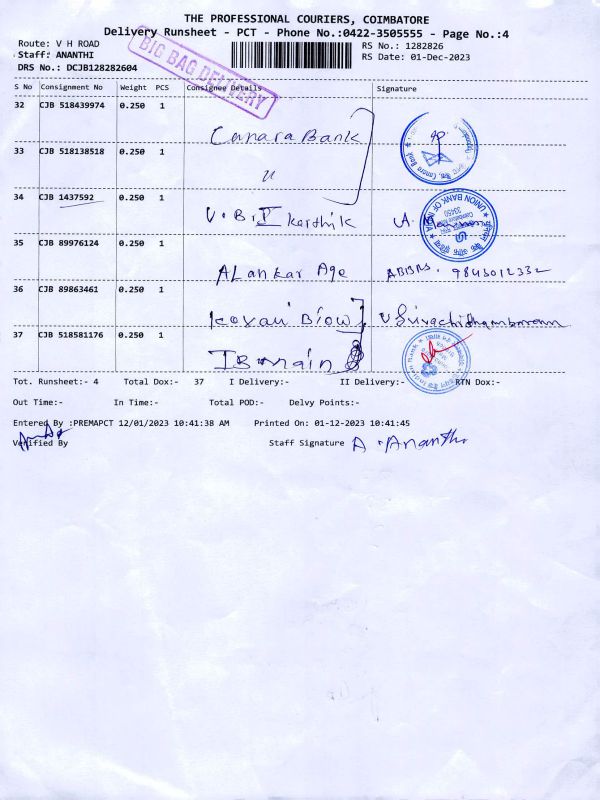 THE PROFESSIONAL COURIERS, COIMBATORE
Delivery Runsheet - PCT - Phone No.:0422-3505555 - Page No.:4
Route: V H ROAD
RS No.: 1282826
Staff: ANANTHI
RS Date: 01-Dec-2023
DRS No.: DCJB128282604
BIG BAG DELIVERY
S No Consignment No Weight PCS Consignee Details Signature
32 CJB 518439974 0.250 1
Canara Bank
33 CJB 518138518 0.250 1
"
34 CJB 1437592 0.250 1
Karthik
UNION BANK OF INDIA
35 CJB 89976124 0.250 1
ALankar Age
36 CJB 89863461 0.250 1
37 CJB 518581176 0.250 1
IB main
Tot. Runsheet:- 4 Total Dox:- 37 I Delivery:- II Delivery:- RTN Dox:-
Out Time:- In Time:- Total POD:- Delvy Points:-
Entered By :PREMAPCT 12/01/2023 10:41:38 AM Printed On: 01-12-2023 10:41:45
Verified By Staff Signature A. Ananthi